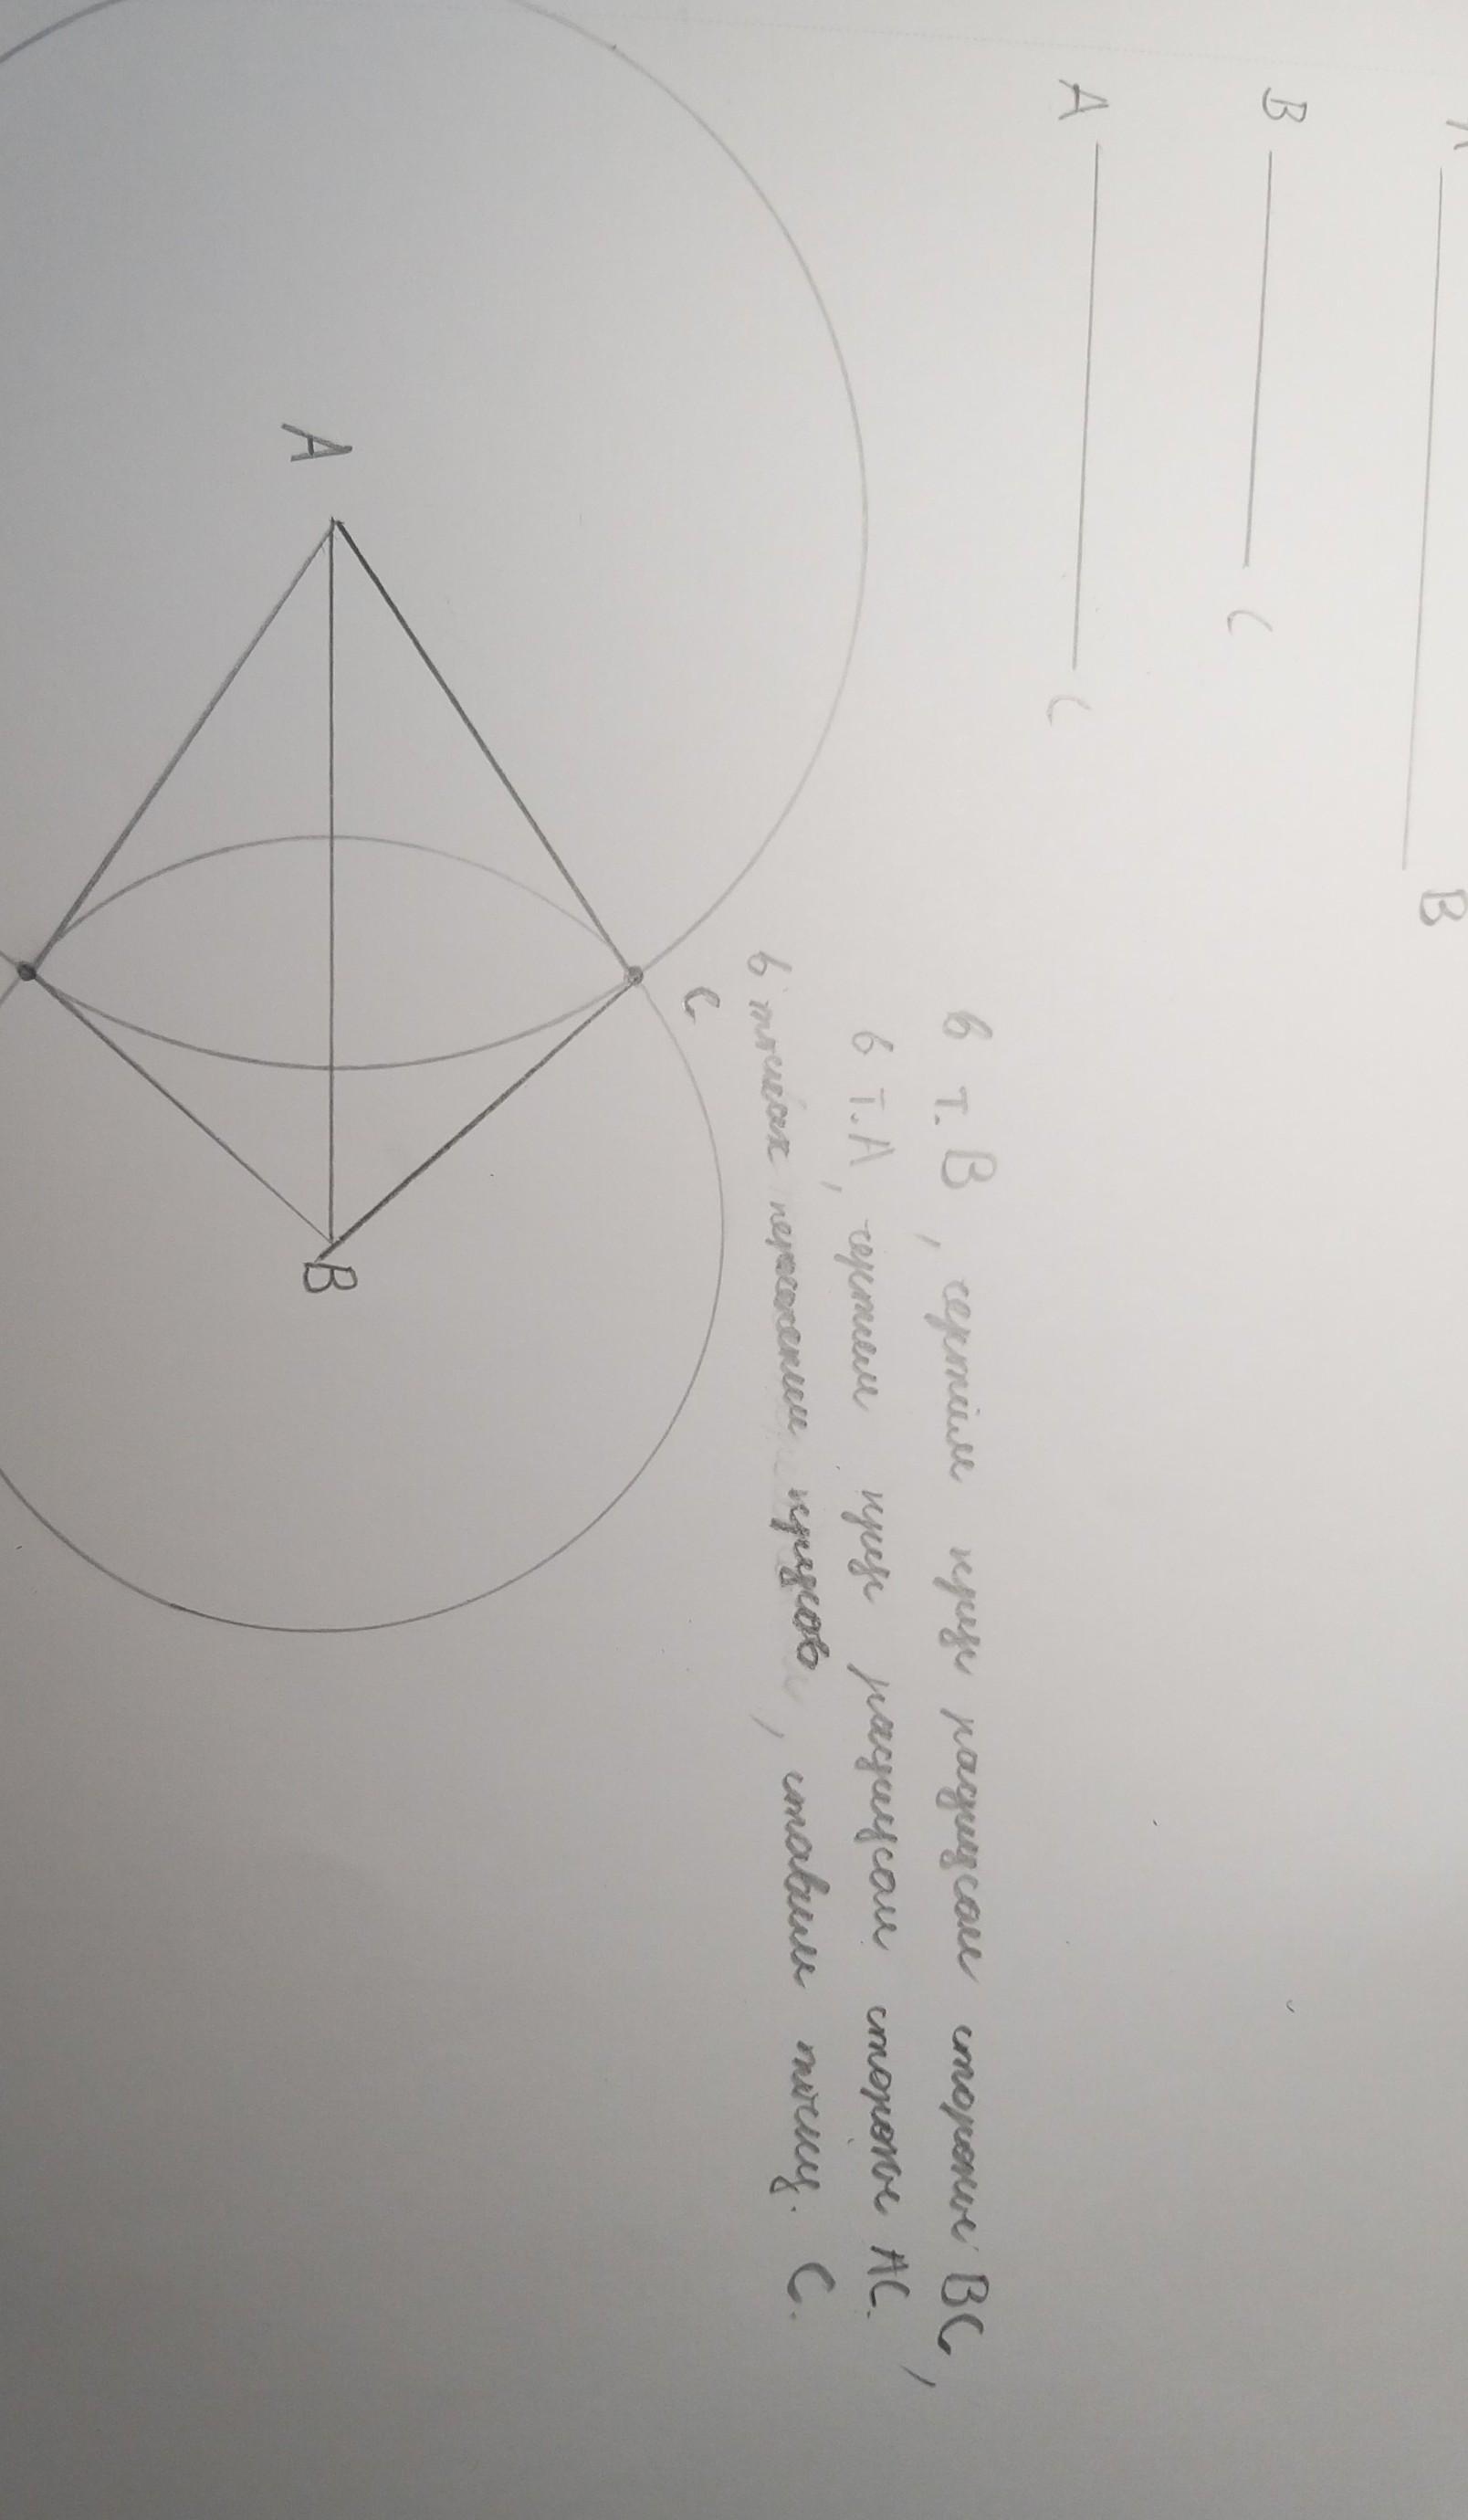 A B
B C
A C
в т. В, чертим круг радиусом стороне ВС,
в т. А, чертим круг радиусом стороне АС.
в точках пересечении кругов, ставим точку. С.
C
A B